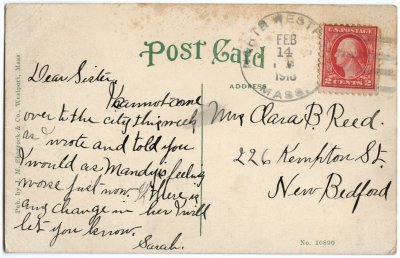 Post Card
ADDRESS
NORTH WESTPORT
FEB
14
1918
MASS.
U.S. POSTAGE
2 CENTS 2
Dear Sister,
I cannot come
over to the city this week
as I wrote and told you
I would as Mandy is feeling
worse just now. If there is
any change in her I will
let you know.
Sarah.
Mrs Clara B. Reed.
226 Kempton St.
New Bedford
Pub. by & Co., Westport, Mass
No. 10890